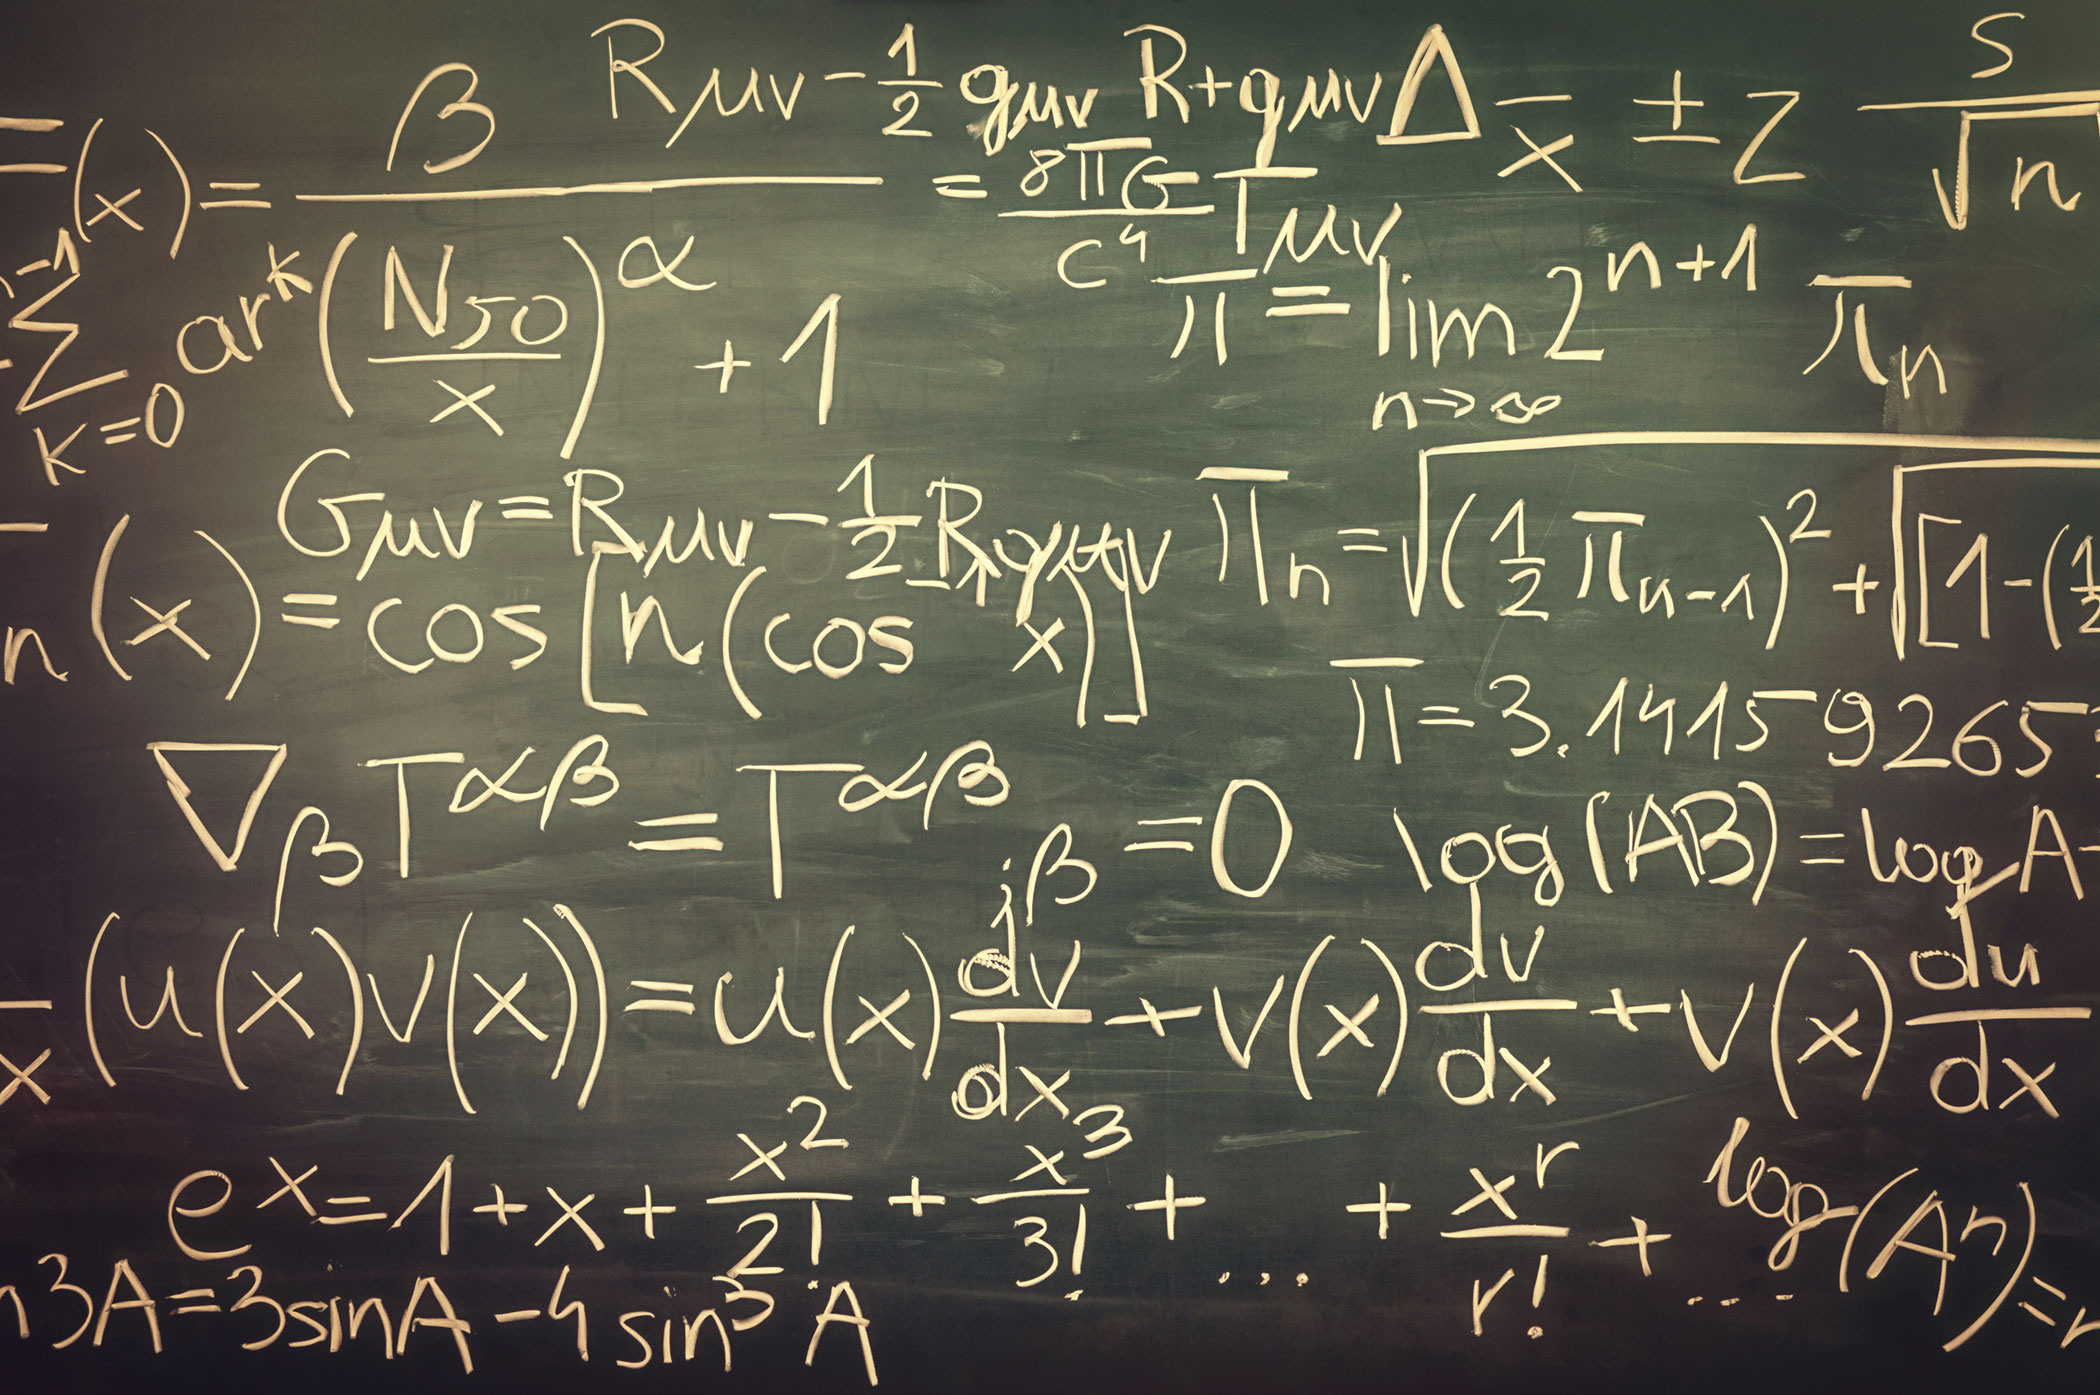 β Rμν - 1/2 gμν R + gμν Δ x̄ ± z s/√n
(x) = β/((N50/x)^α + 1) = 8πG/c⁴ Tμν
-1 Σ k=0 ar^k π = lim n→∞ 2^(n+1) πn
Gμν = Rμν - 1/2 R gμν πn = √((1/2 πn-1)² + √[1-(1/2
n(x) = cos[n(cos x)]
π = 3.14159265
∇β T^αβ = T^αβ jβ = 0 log(AB) = log A
x (u(x)v(x)) = u(x) dv/dx + v(x) dv/dx + v(x) du/dx
e^x = 1 + x + x²/2! + x³/3! + ... + x^r/r! + ... log(A^n) =
n3A = 3sinA - 4sin³A